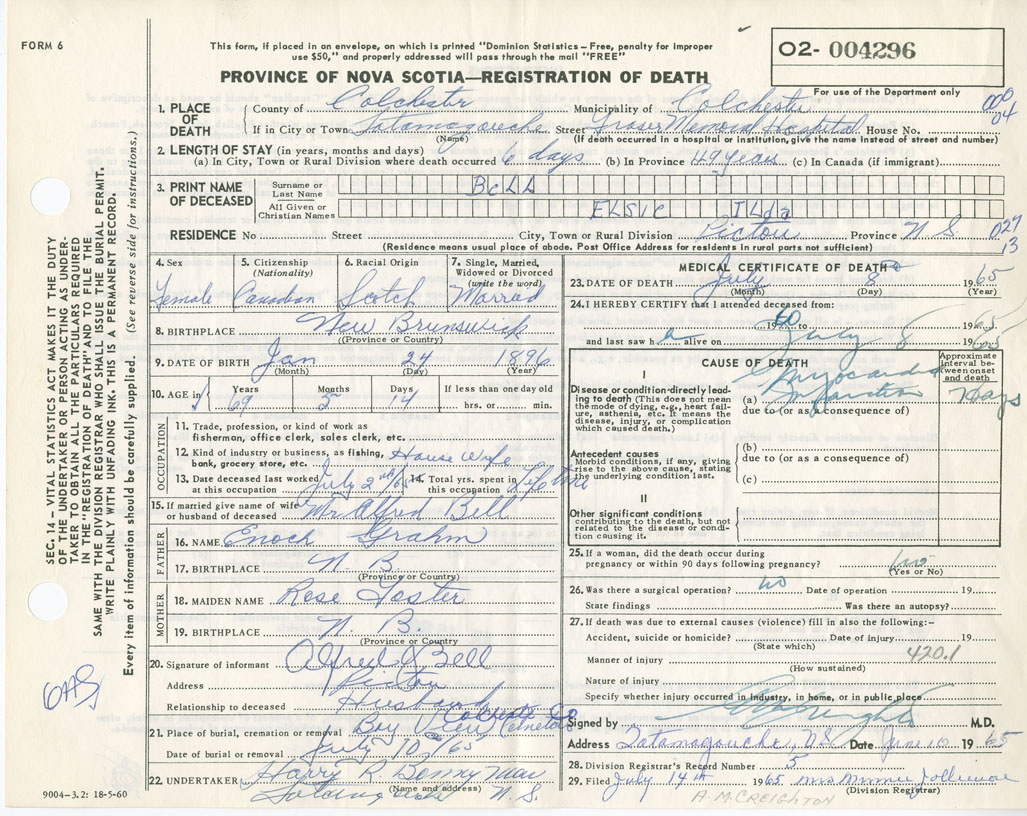 FORM 6
This form, if placed in an envelope, on which is printed "Dominion Statistics – Free, penalty for improper
use $50," and properly addressed will pass through the mail "FREE"
O2- 004296
PROVINCE OF NOVA SCOTIA—REGISTRATION OF DEATH
For use of the Department only
000
04
1. PLACE OF DEATH
County of Colchester Municipality of Colchester
If in City or Town Tatamagouche Street Fraser Memorial Hospital House No.
(Name) (If death occurred in a hospital or institution, give the name instead of street and number)
2. LENGTH OF STAY (in years, months and days)
(a) In City, Town or Rural Division where death occurred 6 days (b) In Province 49 years (c) In Canada (if immigrant)
3. PRINT NAME OF DECEASED
Surname or Last Name BELL
All Given or Christian Names ELSIE ILda
RESIDENCE No Street City, Town or Rural Division Pictou Province N.S.
029
13
(Residence means usual place of abode. Post Office Address for residents in rural parts not sufficient)
4. Sex 5. Citizenship (Nationality) 6. Racial Origin 7. Single, Married, Widowed or Divorced (write the word)
Female Canadian Scotch Married
8. BIRTHPLACE New Brunswick
(Province or Country)
9. DATE OF BIRTH Jan 24 1896
(Month) (Day) (Year)
10. AGE in Years Months Days If less than one day old
69 5 14 hrs. or min.
OCCUPATION
11. Trade, profession, or kind of work as
fisherman, office clerk, sales clerk, etc.
12. Kind of industry or business, as fishing,
bank, grocery store, etc. House Wife
13. Date deceased last worked
at this occupation July 2nd/65
14. Total yrs. spent in
this occupation Life time
15. If married give name of wife
or husband of deceased Mr Alfred Bell
FATHER
16. NAME Enoch Grahm
17. BIRTHPLACE N B
(Province or Country)
MOTHER
18. MAIDEN NAME Rose Foster
19. BIRTHPLACE N. B.
(Province or Country)
20. Signature of informant Alfred J Bell
Address Pictou
Relationship to deceased Husband
21. Place of burial, cremation or removal Bay View Cemetery Colchester Co
Date of burial or removal July 10th/65
22. UNDERTAKER Harry R. Bonny
(Name and address)
N. S.
9004-3.2: 18-5-60
MEDICAL CERTIFICATE OF DEATH
23. DATE OF DEATH July 8 1965
(Month) (Day) (Year)
24. I HEREBY CERTIFY that I attended deceased from:
1960 to 1965
and last saw h alive on July 8 1965
CAUSE OF DEATH
Approximate interval between onset and death
I
Disease or condition directly lead-
ing to death (This does not mean
the mode of dying, e.g., heart failure,
asthenia, etc. It means the
disease, injury, or complication
which caused death.)
(a) Myocardial Infarction days
due to (or as a consequence of)
Antecedent causes
Morbid conditions, if any, giving
rise to the above cause, stating
the underlying condition last.
(b)
due to (or as a consequence of)
(c)
II
Other significant conditions
contributing to the death, but not
related to the disease or condi-
tion causing it.
25. If a woman, did the death occur during
pregnancy or within 90 days following pregnancy? no
(Yes or No)
26. Was there a surgical operation? no Date of operation 19
State findings Was there an autopsy?
27. If death was due to external causes (violence) fill in also the following:–
Accident, suicide or homicide? Date of injury 19
(State which)
420.1
Manner of injury
(How sustained)
Nature of injury
Specify whether injury occurred in industry, in home, or in public place
Signed by M.D.
Address Tatamagouche, N.S. Date June 10 1965
28. Division Registrar's Record Number 5
29. Filed July 14th 1965 Mrs Minnie Jollimore
(Division Registrar)
A. M. CREIGHTON
SEC. 14– VITAL STATISTICS ACT MAKES IT THE DUTY
OF THE UNDERTAKER OR PERSON ACTING AS UNDER-
TAKER TO OBTAIN ALL THE PARTICULARS REQUIRED
IN THE "REGISTRATION OF DEATH" AND TO FILE THE
SAME WITH THE DIVISION REGISTRAR WHO SHALL ISSUE THE BURIAL PERMIT.
WRITE PLAINLY WITH UNFADING INK. THIS IS A PERMANENT RECORD.
Every item of information should be carefully supplied. (See reverse side for instructions.)